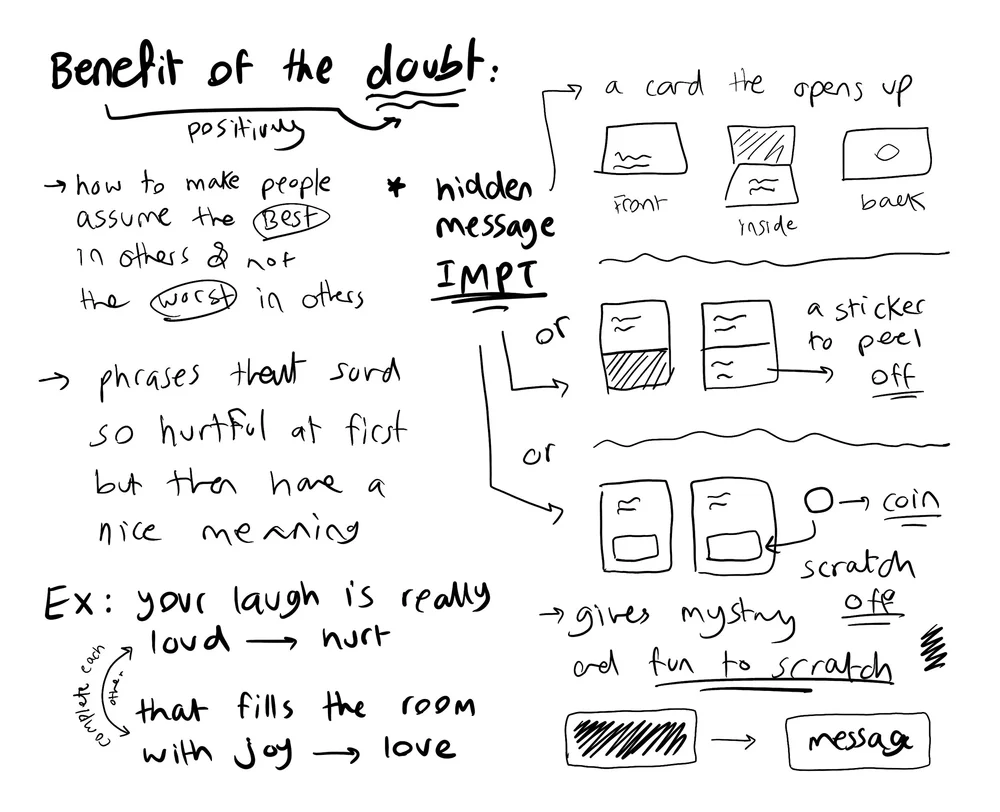 Benefit of the doubt:
positively
→ how to make people
assume the Best
in others & not
the worst in others
→ phrases that sound
so hurtful at first
but then have a
nice meaning
Ex: your laugh is really
loud → hurt
complete each
other
that fills the room
with joy → love
* hidden
message
IMPT
→ a card the opens up
Front
inside
back
or
a sticker
to peel
off
or
→ coin
scratch
off
→ gives mystray
and fun to scratch
→ message